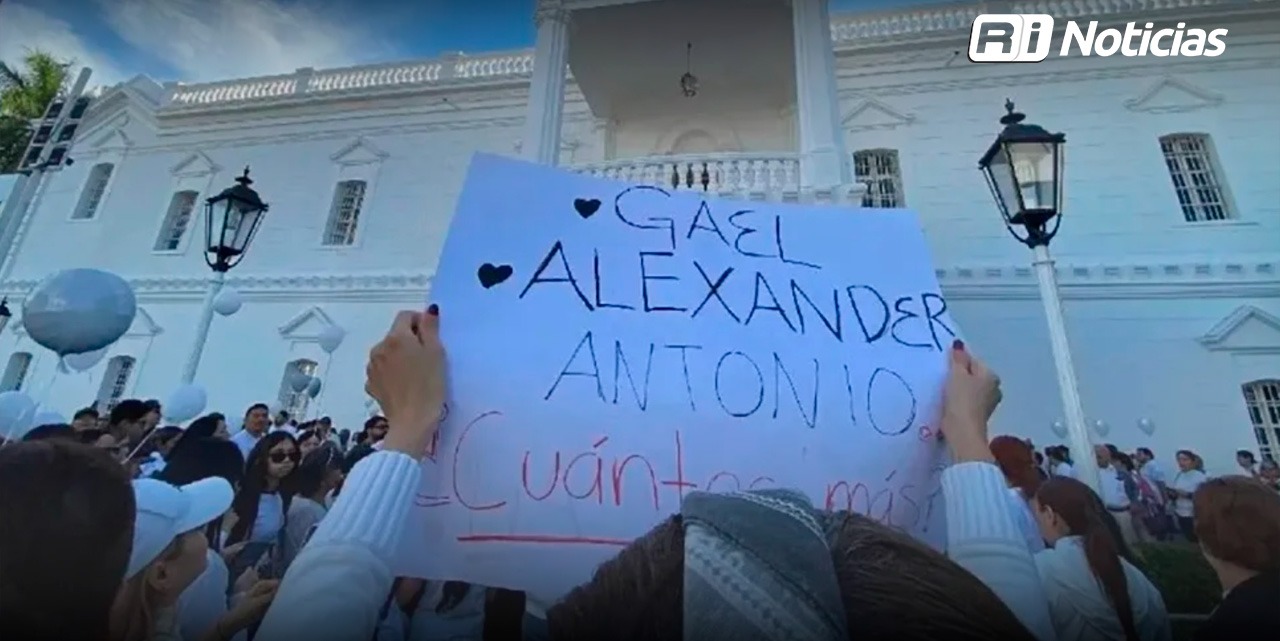 Ri Noticias
♥ GAEL
♥ ALEXANDER
ANTONIO.
¿Cuántos más?